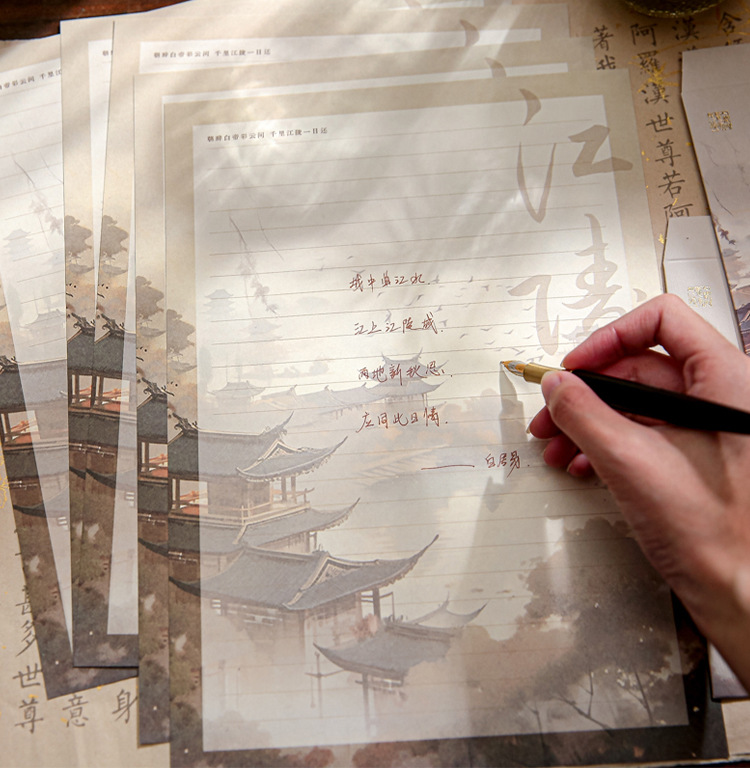 朝辞白帝彩云间 千里江陵一日还
朝辞白帝彩云间 千里江陵一日还
江陵
城中曲江水.
江上江陵城.
两地新秋思.
应同此日情.
—— 白居易.
阿羅漢世尊若阿
著我
多世尊
意
身